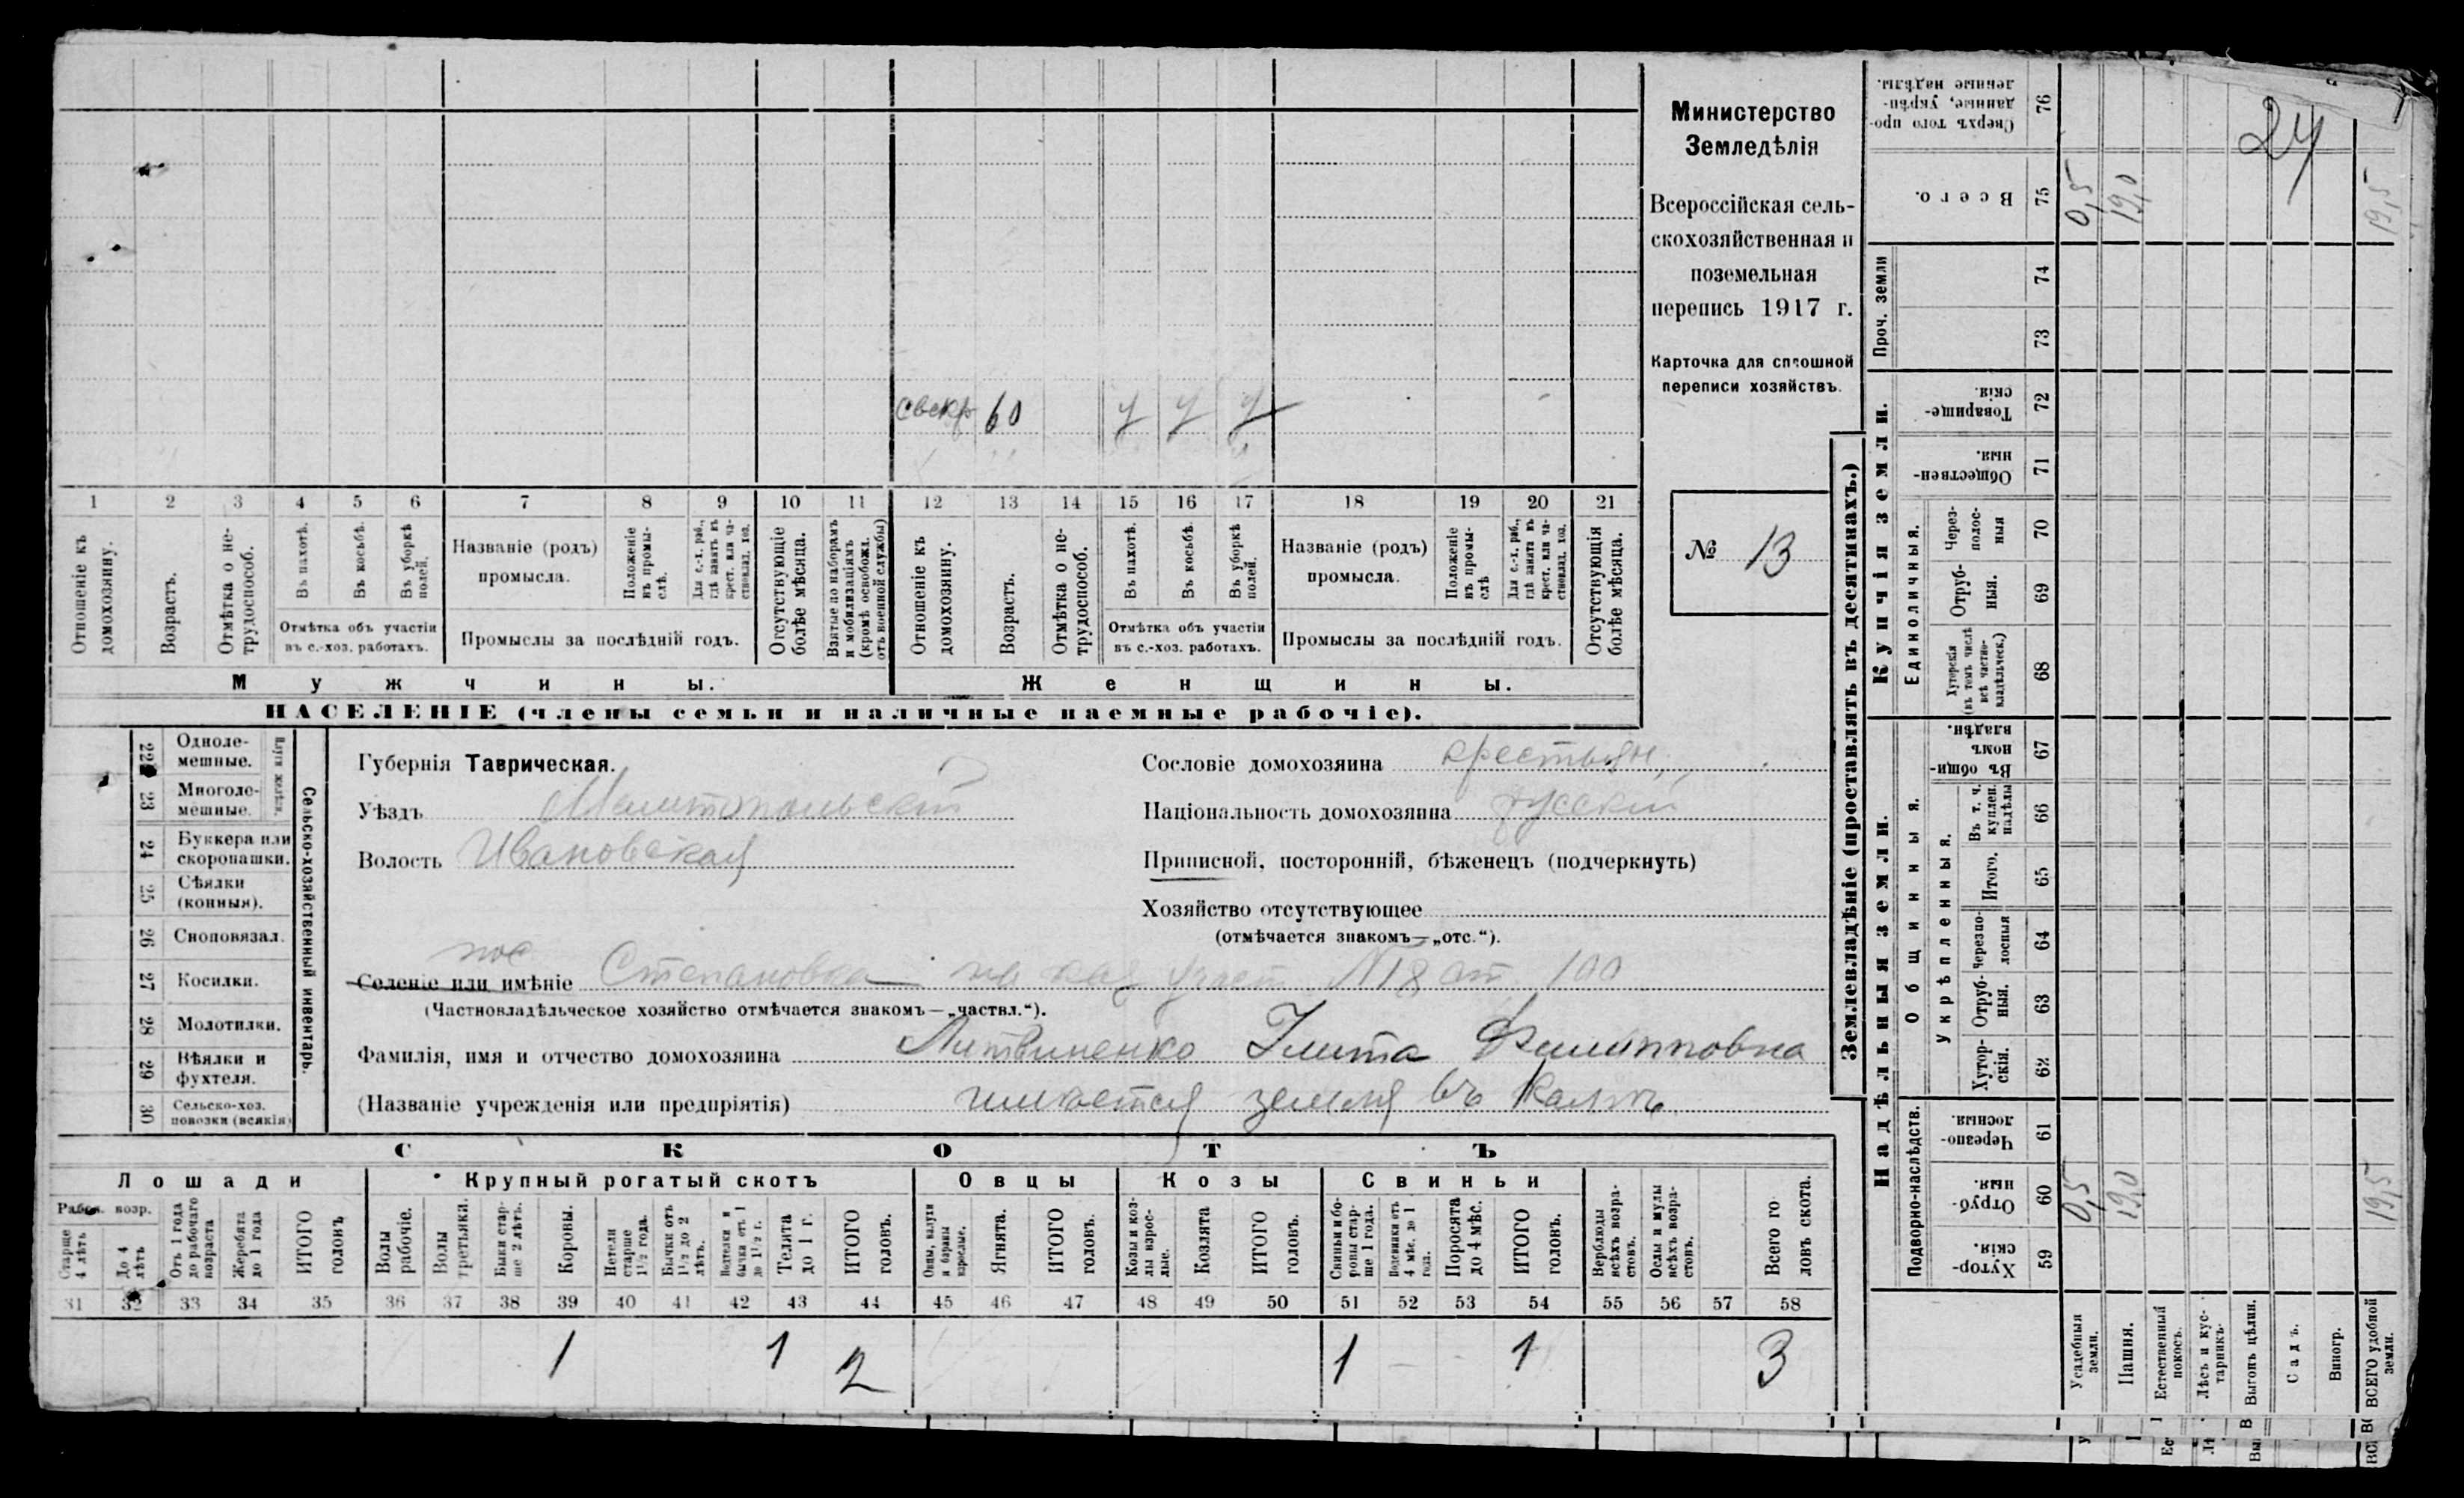 свекр 60 у у у
1 2 3 4 5 6 7 8 9 10 11 12 13 14 15 16 17 18 19 20 21
Отношеніе къ домохозяину.
Возрастъ.
Отмѣтка о не-
трудоспособ.
Въ пахотѣ.
Въ косьбѣ.
Въ уборкѣ
полей.
Отмѣтка объ участіи
въ с.-хоз. работахъ.
Названіе (родъ)
промысла.
Положеніе
въ промы-
слѣ.
Для с.-х. раб.,
гдѣ занятъ въ
крест. или ча-
стновлад. хоз.
Промыслы за послѣдній годъ.
Отсутствующіе
болѣе мѣсяца.
Взятые по наборамъ
и мобилизаціямъ
(кромѣ освобожд.
отъ военной службы)
Отношеніе къ
домохозяину.
Возрастъ.
Отмѣтка о не-
трудоспособ.
Въ пахотѣ.
Въ косьбѣ.
Въ уборкѣ
полей.
Отмѣтка объ участіи
въ с.-хоз. работахъ.
Названіе (родъ)
промысла.
Положеніе
въ промы-
слѣ
Для с.-х. раб.,
гдѣ занята въ
крест. или ча-
стновлад. хоз.
Промыслы за послѣдній годъ.
Отсутствующія
болѣе мѣсяца.
Мужчины.
Женщины.
НАСЕЛЕНІЕ (члены семьи и наличные наемные рабочіе).
Министерство
Земледѣлія
Всероссійская сель-
скохозяйственная и
поземельная
перепись 1917 г.
Карточка для сплошной
переписи хозяйствъ.
№ 13
22 Одноле-
мешные.
23 Многоле-
мешные.
24 Буккера или
скоропашки.
25 Сѣялки
(конныя).
26 Сноповязал.
27 Косилки.
28 Молотилки.
29 Вѣялки и
фухтеля.
30 Сельско-хоз.
повозки (всякія)
Сельско-хозяйственный инвентарь.
Губернія Таврическая.
Уѣздъ Мелитопольскій
Волость Ивановская
Сословіе домохозяина крестьян.
Національность домохозяина русскій
Приписной, посторонній, бѣженецъ (подчеркнуть)
Хозяйство отсутствующее
(отмѣчается знакомъ—„отс.“).
пос
Селеніе или имѣніе Степановка на каз участ. № 18 ат. 100
(Частновладѣльческое хозяйство отмѣчается знакомъ—„частвл.“).
Фамилія, имя и отчество домохозяина Литвиненко Улита Филипповна
(Названіе учрежденія или предпріятія) имѣется земля въ
СКОТЪ
Лошади
Крупный рогатый скотъ
Овцы
Козы
Свиньи
Рабоч. возр.
Старше
4 лѣтъ
До 4
лѣтъ
Отъ 1 года
до рабочаго
возраста
Жеребята
до 1 года
ИТОГО
головъ
Волы
рабочіе.
Волы
третьяки.
Быки стар-
ше 2 лѣтъ.
Коровы.
Нетели
старше
1½ года.
Бычки отъ
1½ до 2
лѣтъ.
Телята
до 1 г.
ИТОГО
головъ.
Ягнята.
ИТОГО
головъ.
Козы и коз-
лы взрос-
лые.
Козлята
ИТОГО
головъ.
Свиньи и бо-
ровы стар-
ше 1 года.
Подсвинки отъ
4 мѣс. до 1
года.
Поросята
до 4 мѣс.
ИТОГО
головъ.
Верблюды
всѣхъ возра-
стовъ.
Ослы и мулы
всѣхъ возра-
стовъ.
Всего го
ловъ скота.
31 32 33 34 35 36 37 38 39 40 41 42 43 44 45 46 47 48 49 50 51 52 53 54 55 56 57 58
1 1 2 1 1 3
Землевладѣніе (проставлять въ десятинахъ.)
Надѣльныя земли.
Купчія земли.
Проч. земли
Подворно-наслѣдств.
Общинныя.
Укрѣпленныя.
Единоличныя.
Сверхъ того про-
данные, укрѣп-
ленные надѣлы.
76
Всего.
75
74
73
Товарище-
скія.
72
Обществен-
ныя.
71
Через-
полос-
ныя
70
Отруб-
ныя.
69
Хуторскія
(въ томъ числѣ
всѣ частно-
владѣльческ.)
68
Въ общин-
номъ
владѣн.
67
Въ т. ч.
куплен.
надѣлы
66
Итого.
65
Черезпо-
лосныя
64
Отруб-
ныя.
63
Хутор-
скія.
62
Черезпо-
лосныя.
61
Отруб-
ныя.
60
Хутор-
скія.
59
24
0,5 19,0 19,5
0,5 19,0 19,5
Усадебныя
земли.
Пашня.
Естественный
покосъ.
Лѣсъ и кус-
тарникъ.
Выгонъ цѣлин.
Садъ.
Виногр.
ВСЕГО удобной
земли.